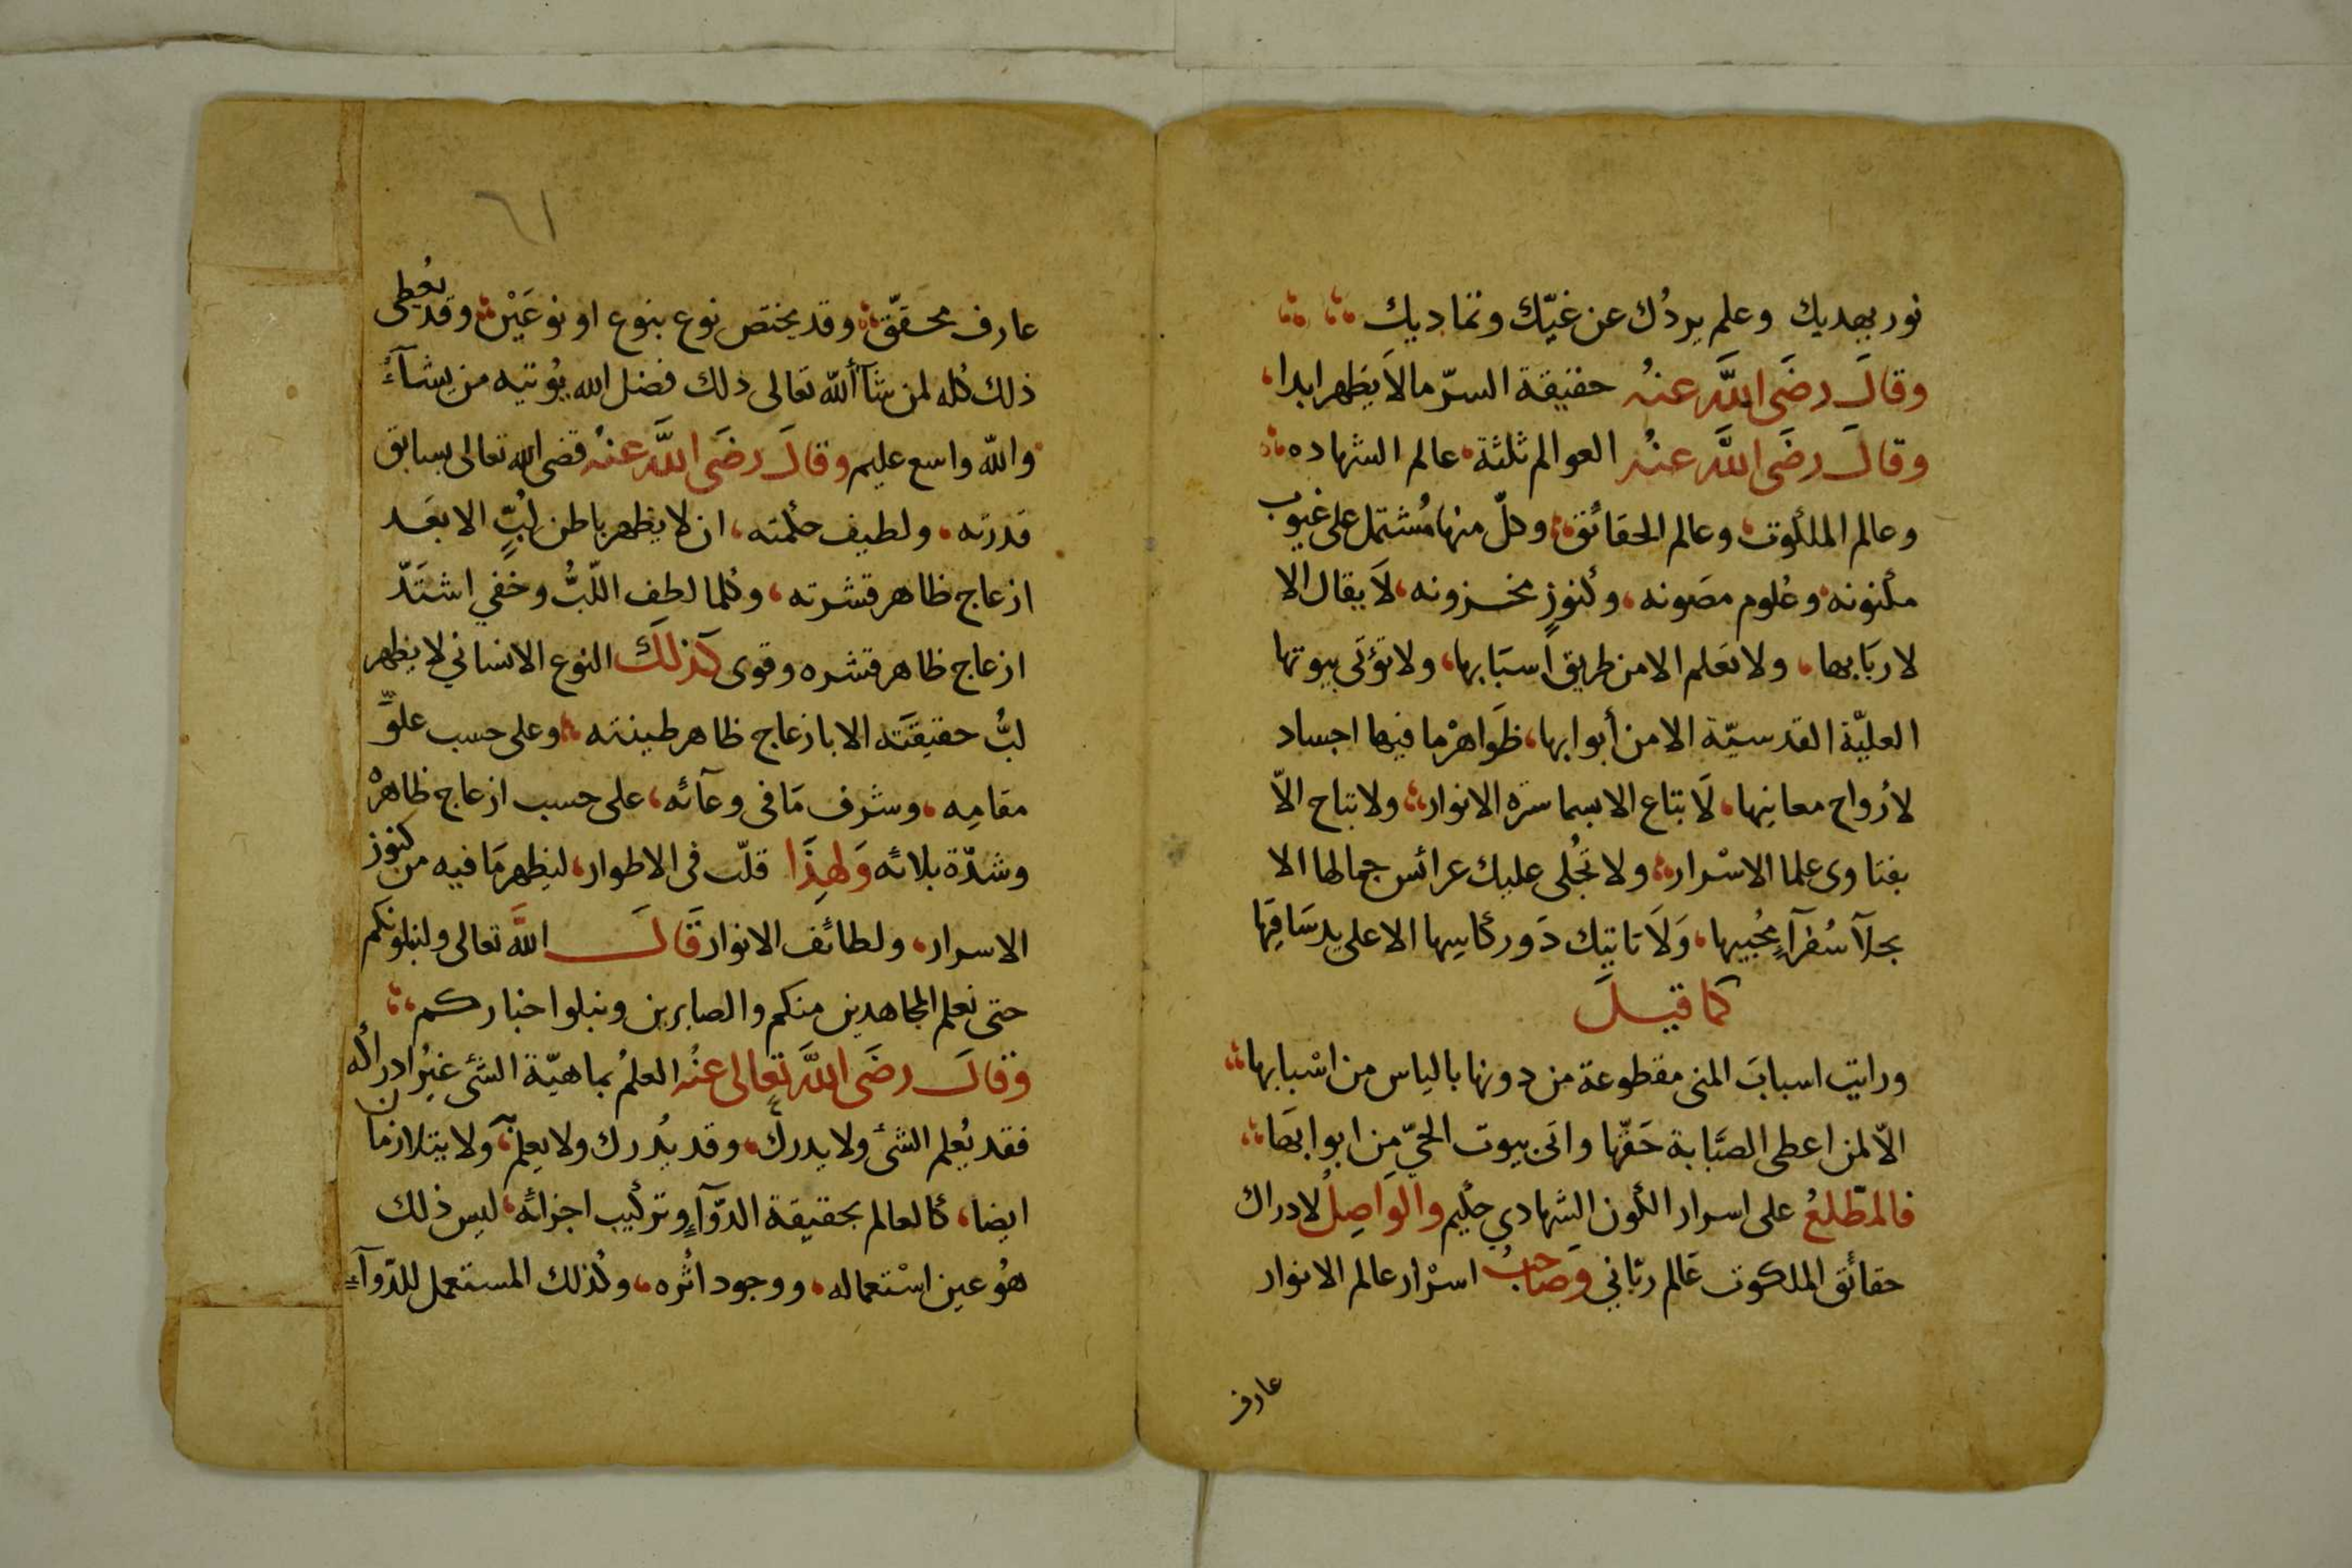 نور يهديك وعلم يردُك عن غيّك وتماديك
وقالَ رضَى اللَّه عنهُ حقيقة السرّ مالاَ يظهر ابدا،
وقالَ رضَى اللَّه عنهُ العوالم ثلثة عالم الشهاده
وعالم الملكوت وعالم الحقائق وكلّ منها مُشتمل على غيوب
مكنونه وعُلوم مصَونه، وكنوزٍ مخزونه، لاَ يقال الا
لاربَابها، ولا تعَلم الا من طريق اسبَابها، ولا تؤتَى بيوتها
العليّة القدسيّة الا من أبوابها، ظَواهرْ ما فيها اجساد
لأرواح معانيها، لَا تباع الا بسماسرَة الانوار، ولا تباح الاّ
بفتاوى علما الاسْرار، ولا تُجلى عليك عرائس جمالها الا
بجلآ سُفرآءِ مُحبيها، وَلَا تاتيك دَور كاسِها الا على يد سَاقيَها
كما قيلَ
ورايت اسبابَ المنى مقطوعة من دونها بالياس من اسْبابها
الاّ لمن اعطى الصَّبابة حَقّها واتَى بيوت الحيّ من ابوابهَا
فالمطّلعُ على اسرار الكون الشهادي حكيم والوَاصِلُ لادراك
حقائق الملكوت عَالم ربّاني وَصَاحبُ اسرْار عالم الانوار
عارف
٦١
عارف محقّق وقد يختص نوع بنوع او نوعَيْن وقد يُعطى
ذلك كُله لمن شآ اللّه تعَالى ذلك فضل الله يُوتيه من يشآءُ
واللّه واسع عليم وقالَ رضَى اللَّه عنهُ قضى الله تعالى بسابق
قدرته، ولطيف حكمته، ان لا يظهر باطن لُبٍّ الا بعَد
ازعاج ظاهر قشرته، وكلما لطف اللّبُّ وخَفي اشتَدّ
ازعاج ظاهر قشره وقوى كذلكَ النوع الانساني لا يظهر
لبُّ حقيقتَه الا بازعاج ظاهر طينته وعلى حسب علوِّ
مقامِه، وشرف مَا فى وعآئه، على حسب ازعاج ظاهرْ
وشدّة بلائه وَلهذَا قلّب فى الاطوار، ليظهر مَا فيه من كنوز
الاسرار، ولطائف الانوار قَالَ اللَّه تعالى ولنبلونكم
حتى نعلم المجاهدين منكم والصابرين ونبلوا خباركم
وقالَ رضَى اللَّه تعالى عنُه العلمُ بماهيّة الشئ غيرُ ادراكه
فقد يُعلم الشئ ولا يدرك، وقد يُدرك ولا يعلم، ولا يتلازمان
ايضا، كالعالم بحقيقة الدّوآءِ وتركيب اجزائه، ليس ذلك
هُو عين اسْتعماله، ووجود اثُره، وكذلك المستعمل للدّوآءِ